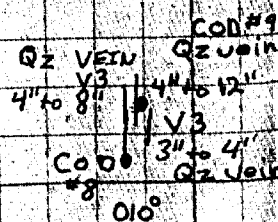 COD #9
Qz vein
Qz VEIN
V3
4" to 8"
4" to 12"
V3
3" to 4"
Qz vein
COD
#8
010°